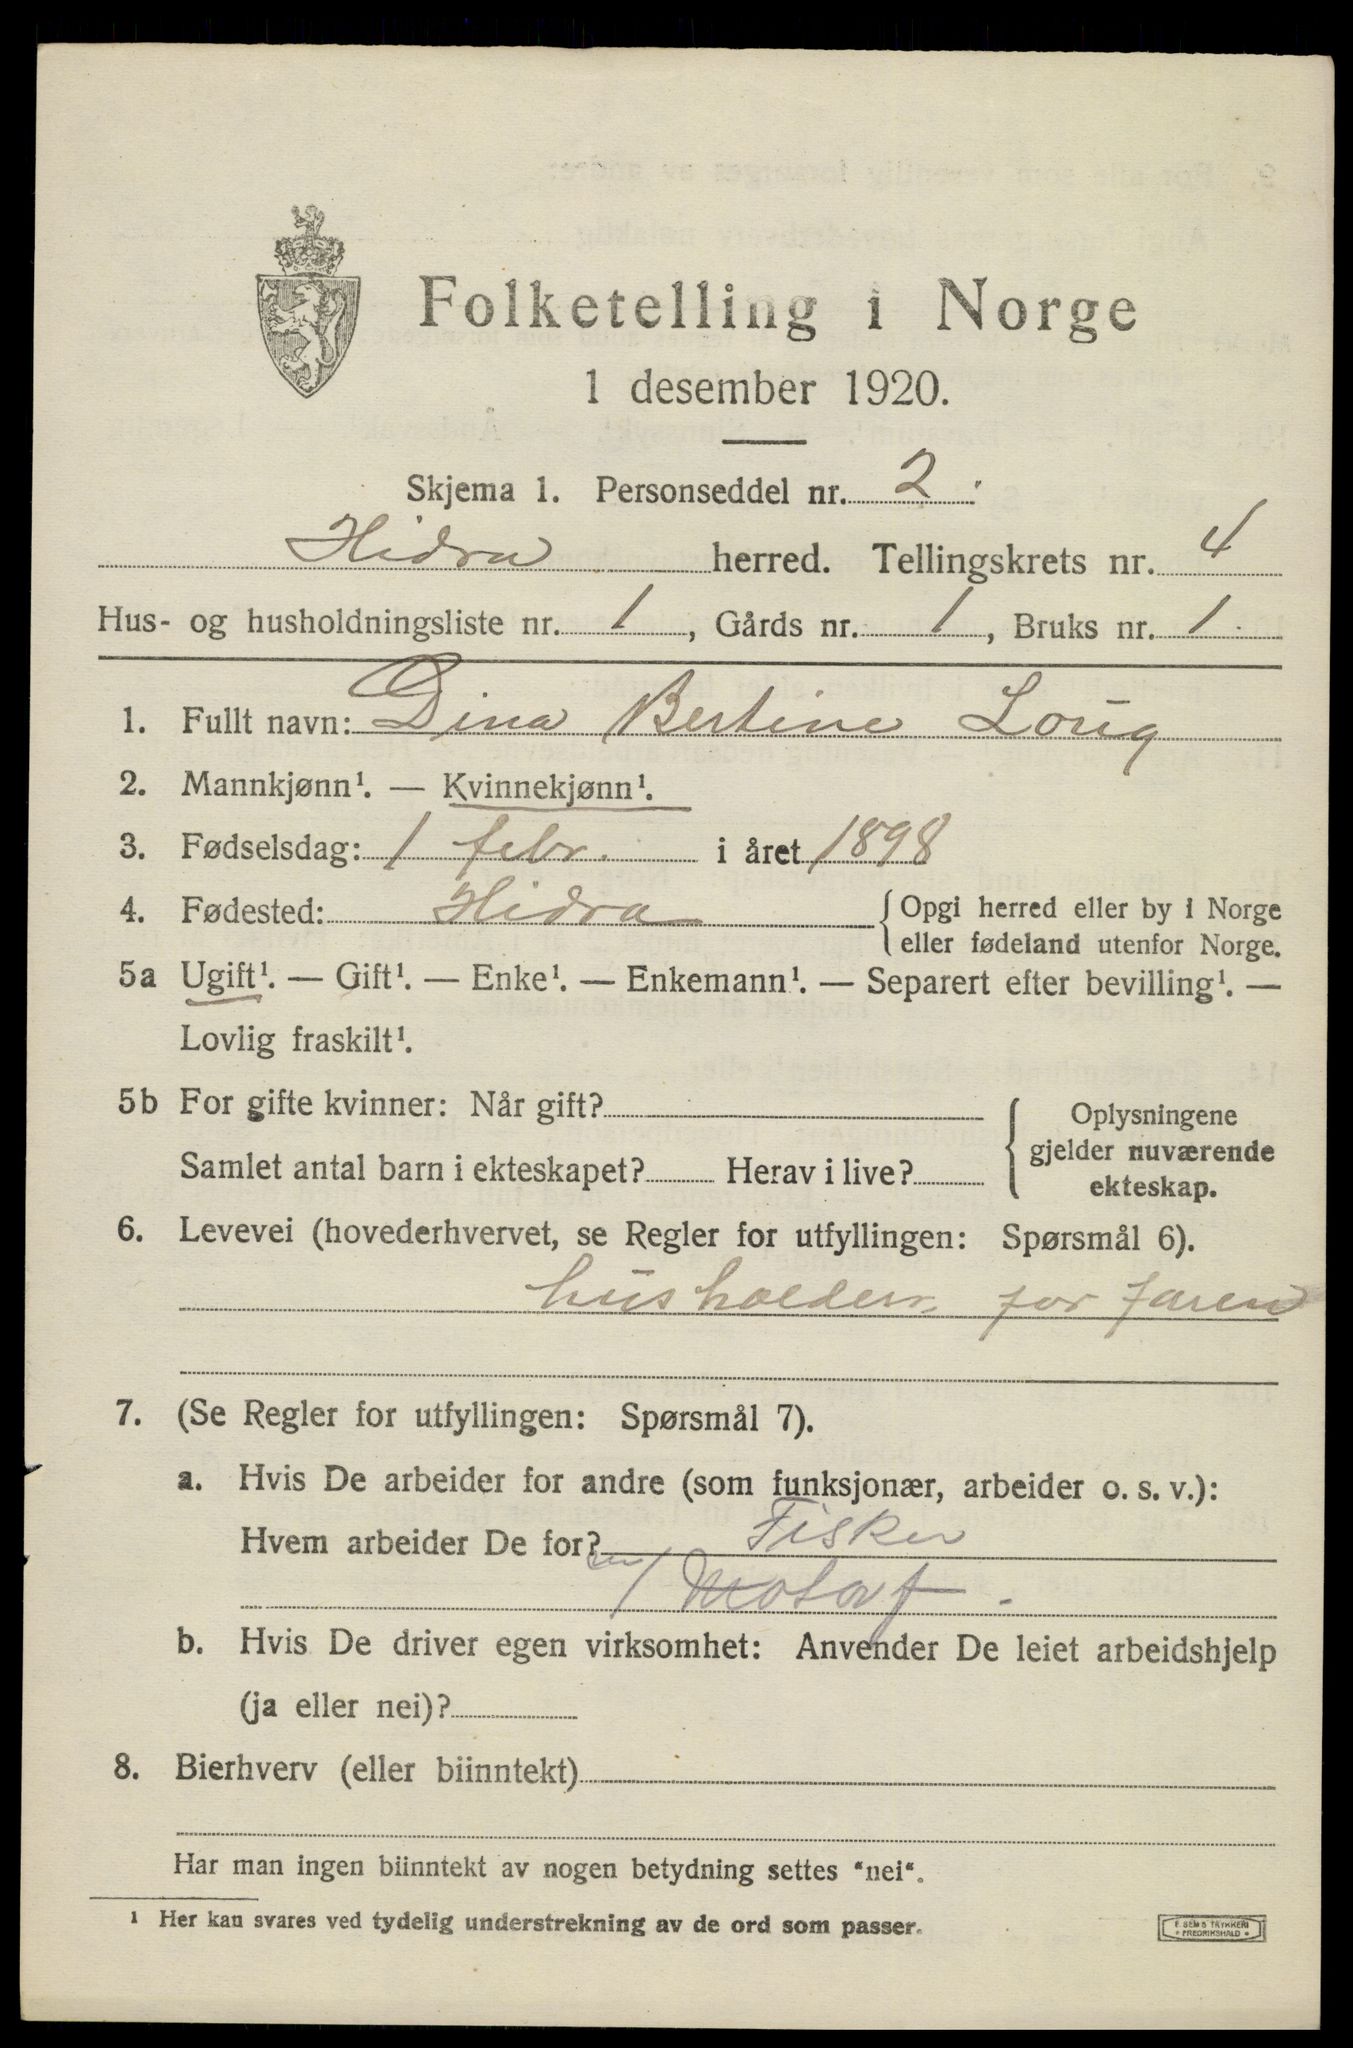 Folketelling i Norge
1 desember 1920.
Skjema 1. Personseddel nr. 2
Hidra herred. Tellingskrets nr. 4
Hus- og husholdningsliste nr. 1, Gårds nr. 1, Bruks nr. 1.
1. Fullt navn: Dina Bertine Loug
2. Mannkjønn¹. — Kvinnekjønn¹.
3. Fødselsdag: 1 febr. i året 1898
4. Fødested: Hidra { Opgi herred eller by i Norge
eller fødeland utenfor Norge.
5a Ugift¹. — Gift¹. — Enke¹. — Enkemann¹. — Separert efter bevilling¹. —
Lovlig fraskilt¹.
5b For gifte kvinner: Når gift? { Oplysningene
gjelder nuværende
Samlet antal barn i ekteskapet? Herav i live?
ekteskap.
6. Levevei (hovederhvervet, se Regler for utfyllingen: Spørsmål 6).
husholder. for faren
7. (Se Regler for utfyllingen: Spørsmål 7).
a. Hvis De arbeider for andre (som funksjonær, arbeider o. s. v.):
Hvem arbeider De for? Fisker
m/ Motorf.
b. Hvis De driver egen virksomhet: Anvender De leiet arbeidshjelp
(ja eller nei)?
8. Bierhverv (eller biinntekt)
Har man ingen biinntekt av nogen betydning settes "nei".
¹ Her kan svares ved tydelig understrekning av de ord som passer.
E. SEM'S TRYKKERI
FREDRIKSHALD